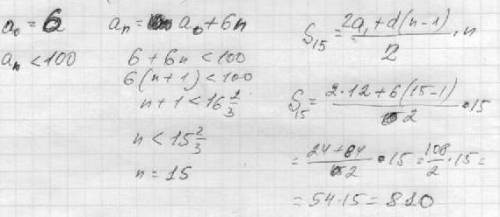 a₀ = 6
aₙ < 100
aₙ = a₀ + 6n
6 + 6n < 100
6(n+1) < 100
n+1 < 16 2/3
n < 15 2/3
n = 15
S₁₅ = (2a₁ + d(n-1))/2 · n
S₁₅ = (2·12 + 6(15-1))/2 · 15
= (24+84)/2 · 15 = 108/2 · 15 =
= 54·15 = 810